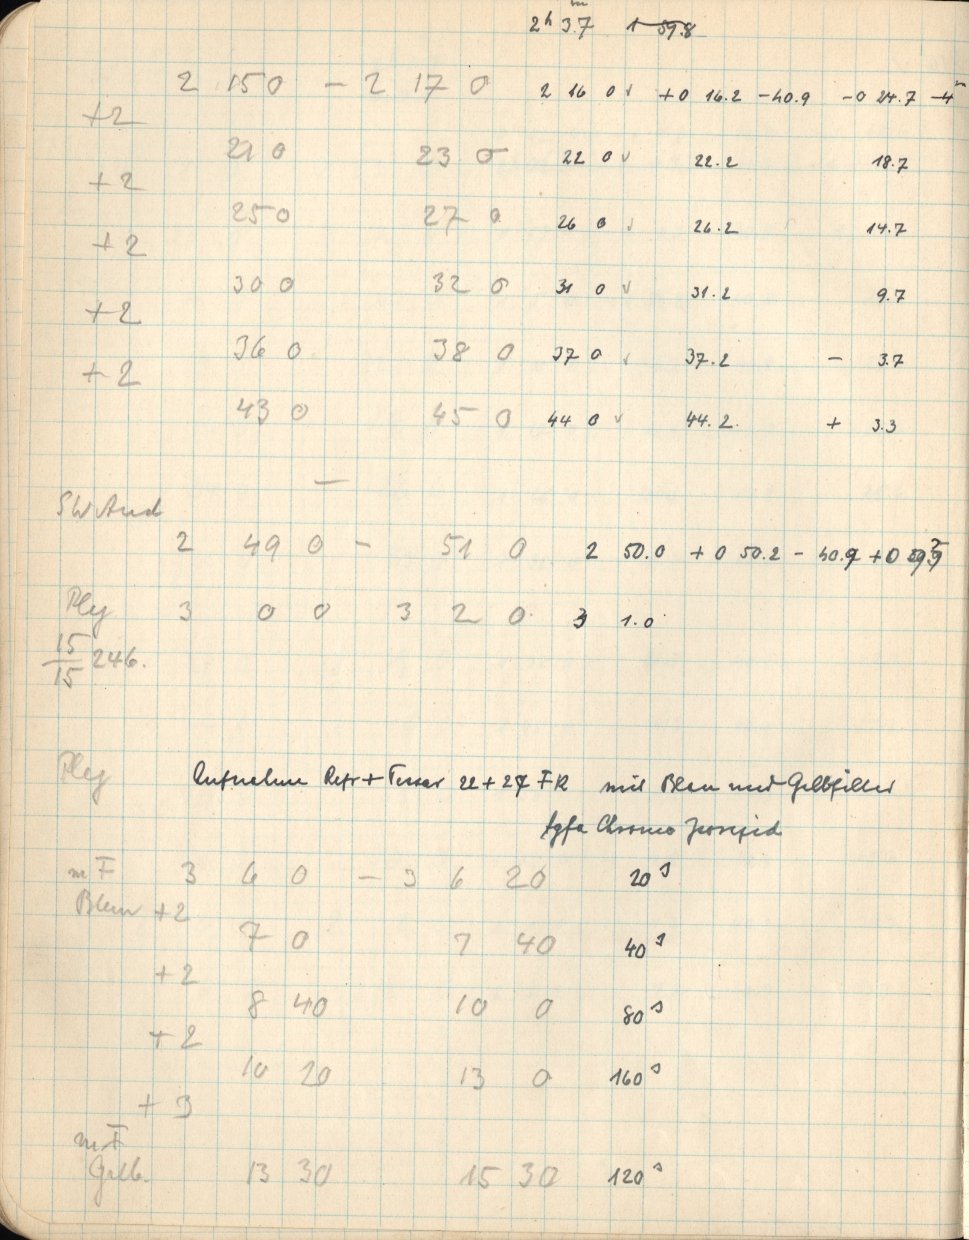 2ʰ 3.7ᵐ 1 59.8
2 15 0 – 2 17 0 2 16 0 √ +0 16.2 –40.9 –0 24.7 –4ᵐ
+2
21 0 23 0 22 0 √ 22.2 18.7
+2
25 0 27 0 26 0 √ 26.2 14.7
+2
30 0 32 0 31 0 √ 31.2 9.7
+2
36 0 38 0 37 0 √ 37.2 – 3.7
+2
43 0 45 0 44 0 √ 44.2 + 3.3
—
SW And
2 49 0 – 51 0 2 50.0 +0 50.2 – 40.9 +0
Plej 3 0 0 3 2 0 3 1.0
15/15 246.
Plej Aufnahme Refr + Tessar 22 + 27 FR mit Blau und Gelbfilter
Agfa Chromo
m F 3 6 0 – 3 6 20 20ˢ
Blau +2
7 0 7 40 40ˢ
+2
8 40 10 0 80ˢ
+2
10 20 13 0 160ˢ
+3
m F
Gelb. 13 30 15 30 120ˢ